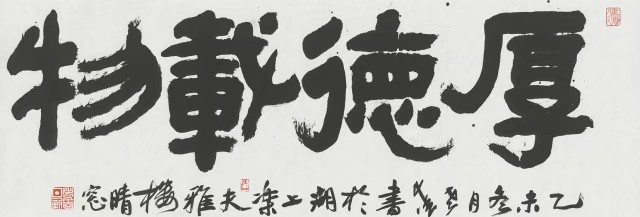 厚德載物
乙未冬月書於湖上夫雅樓晴窓